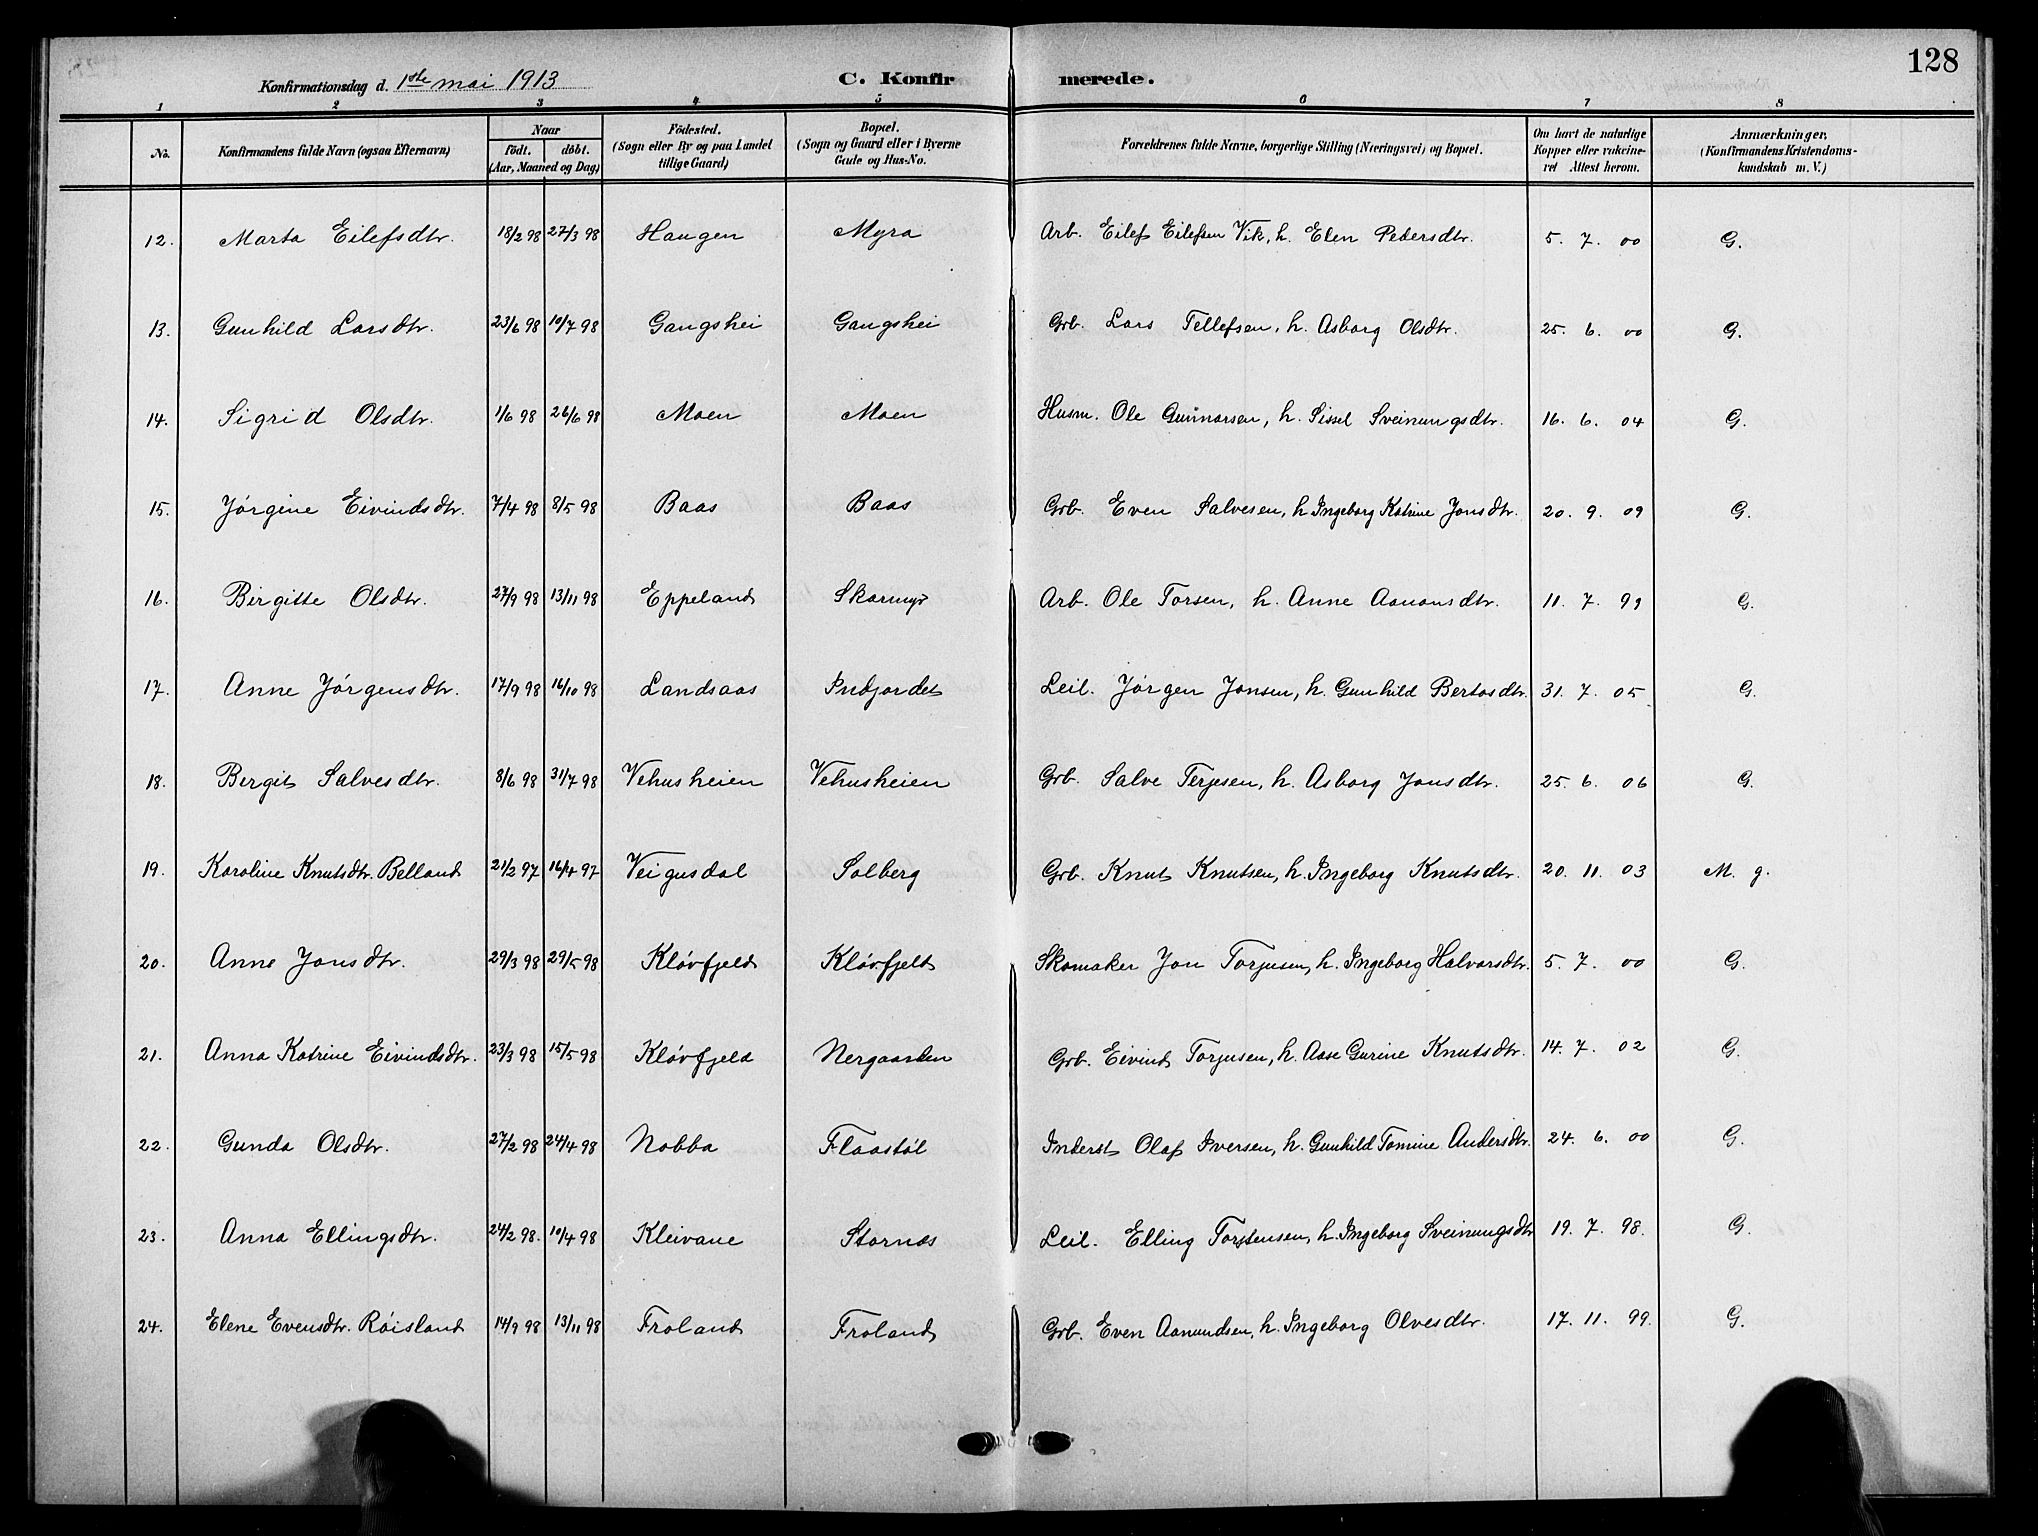 128
Konfirmationsdag d. 1ste mai 1913 C. Konfirmerede.
1 2 3 4 5 6 7 8
No. Konfirmandens fulde Navn (ogsaa Efternavn) Naar födt. döbt. (Aar, Maaned og Dag) Födested. (Sogn eller By og paa Landet tillige Gaard) Bopæl. (Sogn og Gaard eller i Byerne Gade og Hus-No. Forældrenes fulde Navne, borgerlige Stilling (Næringsvei) og Bopæl. Om havt de naturlige Kopper eller vakcineret Attest herom. Anmærkninger, (Konfirmandens Kristendomskundskab m. V.)
12. Marta Eilefsdtr. 18/2 98 27/3 98 Haugen Myra Arb. Eilef Eilefsen Vik, h. Elen Pedersdtr. 5. 7. 00 G.
13. Gunhild Larsdtr. 23/6 98 10/7 98 Gangshei Gangshei Grb. Lars Tellefsen, h. Asborg Olsdtr. 25. 6. 00 G.
14. Sigrid Olsdtr. 1/6 98 26/6 98 Moen Moen Husm. Ole Gunnarsen, h. Sissel Sveinungsdtr. 16. 6. 04 G.
15. Jørgine Eivindsdtr. 7/4 98 8/5 98 Baas Baas Grb. Even Salvesen, h Ingeborg Katrine Jonsdtr. 20. 9. 09 G.
16. Birgitte Olsdtr. 27/9 98 13/11 98 Eppeland Skarmyr Arb. Ole Torsen, h. Anne Aanonsdtr. 11. 7. 99 G.
17. Anne Jørgensdtr. 17/9 98 16/10 98 Landsaas Indjordet Leil. Jørgen Jonsen, h. Gunhild Bertosdtr. 31. 7. 05 G.
18. Bergit Salvesdtr. 8/6 98 31/7 98 Vehusheien Vehusheien Grb. Salve Terjesen, h. Asborg Jonsdtr. 25. 6. 06 G.
19. Karoline Knutsdtr. Belland 21/2 97 16/4 97 Veigusdal Solberg Grb. Knut Knutsen, h. Ingeborg Knutsdtr. 20. 11. 03 M. g.
20. Anne Jonsdtr. 29/3 98 29/5 98 Kløvfjeld Kløvfjelt Skomaker Jon Torjusen, h. Ingeborg Halvorsdtr. 5. 7. 00 G.
21. Anna Katrine Eivindsdtr. 23/3 98 15/5 98 Kløvfjeld Nergaarden Grb. Eivind Torjusen, h. Aase Gurine Knutsdtr. 14. 7. 02 G.
22. Gunda Olsdtr. 27/2 98 24/4 98 Nabba Flaastøl Inderst Olaf Iversen, h. Gunhild Tomine Andersdtr. 24. 6. 00 G.
23. Anna Ellingsdtr. 24/2 98. 10/4 98 Kleivane Stornes Leil. Elling Torstensen, h. Ingeborg Sveinungsdtr 19. 7. 98. G.
24. Elene Evensdtr. Røisland 14/9 98 13/11 98 Froland Froland Grb. Even Aamundsen, h. Ingeborg Olvesdtr. 17. 11. 99. G.